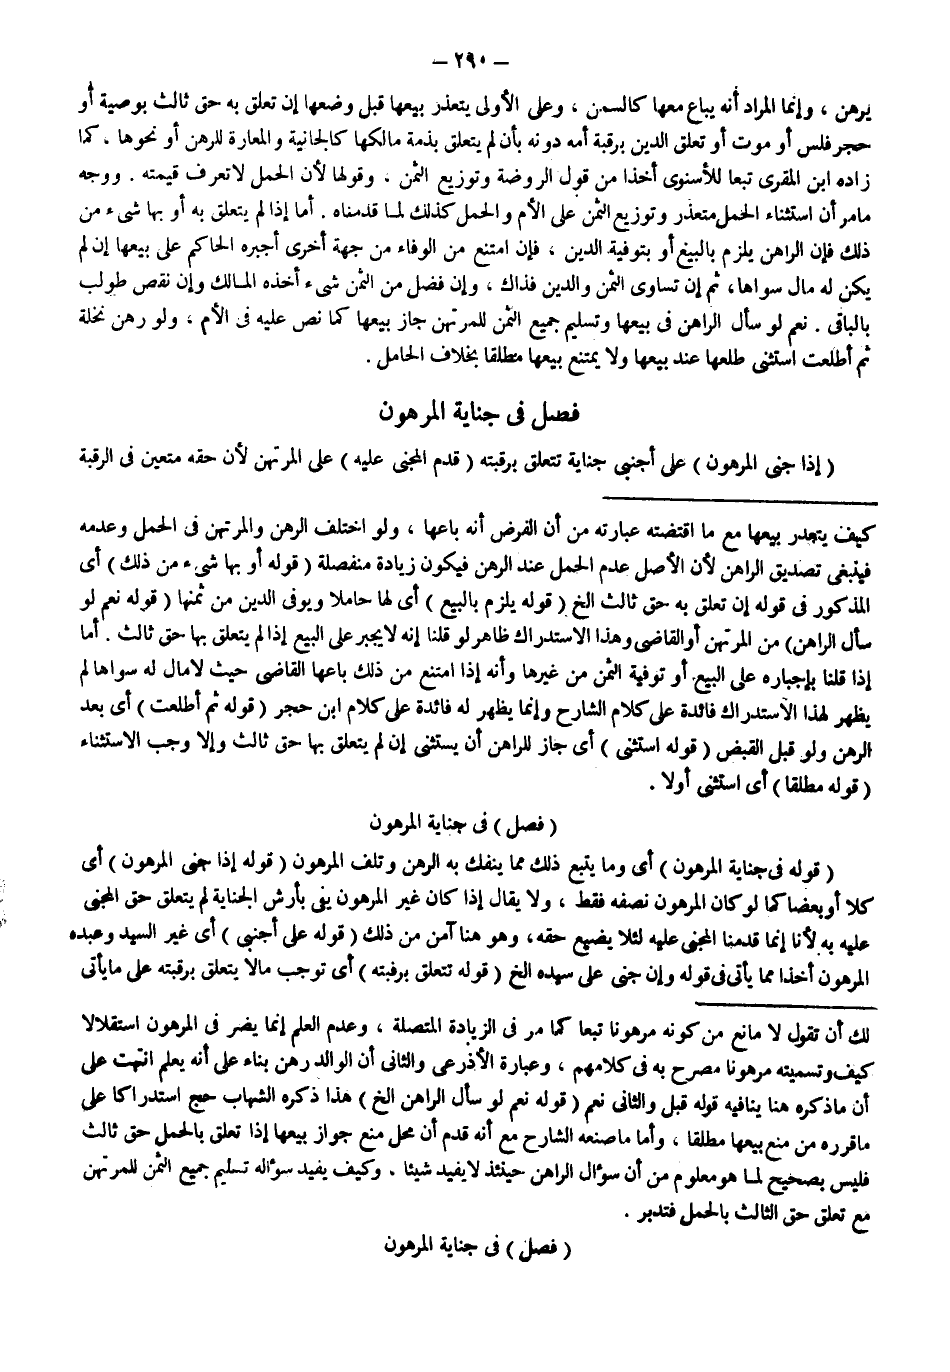 – ٢٩٠ –
يرهن ، وإنما المراد أنه يباع معها كالسمن ، وعلى الأولى يتعذر بيعها قبل وضعها إن تعلق به حق ثالث بوصية أو
حجر فلس أو موت أو تعلق الدين برقبة أمه دونه بأن لم يتعلق بذمة مالكها كالجانية والمعارة للرهن أو نحوها . كما
زاده ابن المقرى تبعا للأسنوى أخذا من قول الروضة وتوزيع الثمن ، وقولها لأن الحمل لاتعرف قيمته . ووجه
مامر أن استثناء الحمل متعذر وتوزيع الثمن على الأم والحمل كذلك لما قدمناه . أما إذا لم يتعلق به أو بها شىء من
ذلك فإن الراهن يلزم بالبيع أو بتوفية الدين ، فإن امتنع من الوفاء من جهة أخرى أجبره الحاكم على بيعها إن لم
يكن له مال سواها، ثم إن تساوى الثمن والدين فذاك ، وإن فضل من الثمن شىء أخذه المالك وإن نقص طولب
بالباقى . نعم لو سأل الراهن فى بيعها وتسليم جميع الثمن للمرتهن جاز بيعها كما نص عليه فى الأم ، ولو رهن نخلة
ثم أطلعت استثنى طلعها عند بيعها ولا يمتنع بيعها مطلقا بخلاف الحامل .
فصل فى جناية المرهون
( إذا جنى المرهون ) على أجنبى جناية تتعلق برقبته ( قدم المجنى عليه ) على المرتهن لأن حقه متعين فى الرقبة
كيف يتعذر بيعها مع ما اقتضته عبارته من أن الفرض أنه باعها ، ولو اختلف الرهن والمرتهن فى الحمل وعدمه
فينبغى تصديق الراهن لأن الأصل عدم الحمل عند الرهن فيكون زيادة منفصلة ( قوله أو بها شىء من ذلك ) أى
المذكور فى قوله إن تعلق به حق ثالث الخ ( قوله يلزم بالبيع ) أى لها حاملا ويوفى الدين من ثمنها ( قوله نعم لو
سأل الراهن) من المرتهن أو القاضى وهذا الاستدراك ظاهر لو قلنا إنه لايجبر على البيع إذا لم يتعلق بها حق ثالث . أما
إذا قلنا بإجباره على البيع أو توفية الثمن من غيرها وأنه إذا امتنع من ذلك باعها القاضى حيث لامال له سواها لم
يظهر لهذا الاستدراك فائدة على كلام الشارح وإنما يظهر له فائدة على كلام ابن حجر ( قوله ثم أطلعت ) أى بعد
الرهن ولو قبل القبض ( قوله استثنى ) أى جاز للراهن أن يستثنى إن لم يتعلق بها حق ثالث وإلا وجب الاستثناء
( قوله مطلقا ) أى استثنى أولا .
( فصل ) فى جناية المرهون
( قوله فى جناية المرهون ) أى وما يتبع ذلك مما ينفك به الرهن وتلف المرهون ( قوله إذا جنى المرهون ) أى
كلا أو بعضا كما لو كان المرهون نصفه فقط ، ولا يقال إذا كان غير المرهون يفى بأرش الجناية لم يتعلق حق المجنى
عليه به لأنا إنما قدمنا المجنى عليه لئلا يضيع حقه، وهو هنا آمن من ذلك ( قوله على أجنبى ) أى غير السيد وعبده
المرهون أخذا مما يأتى فى قوله وإن جنى على سيده الخ ( قوله تتعلق برقبته ) أى توجب مالا يتعلق برقبته على مايأتى
لك أن تقول لا مانع من كونه مرهونا تبعا كما مر فى الزيادة المتصلة ، وعدم العلم إنما يضر فى المرهون استقلالا
كيف وتسميته مرهونا مصرح به فى كلامهم ، وعبارة الأذرعى والثانى أن الولد رهن بناء على أنه يعلم انتهت على
أن ماذكره هنا ينافيه قوله قبل والثانى نعم ( قوله نعم لو سأل الراهن الخ ) هذا ذكره الشهاب حج استدراكا على
ماقرره من منع بيعها مطلقا ، وأما ماصنعه الشارح مع أنه قدم أن محل منع جواز بيعها إذا تعلق بالحمل حق ثالث
فليس بصحيح لما هو معلوم من أن سؤال الراهن حينئذ لايفيد شيئا . وكيف يفيد سؤاله تسليم جميع الثمن للمرتهن
مع تعلق حق الثالث بالحمل فتدبر .
( فصل ) فى جناية المرهون